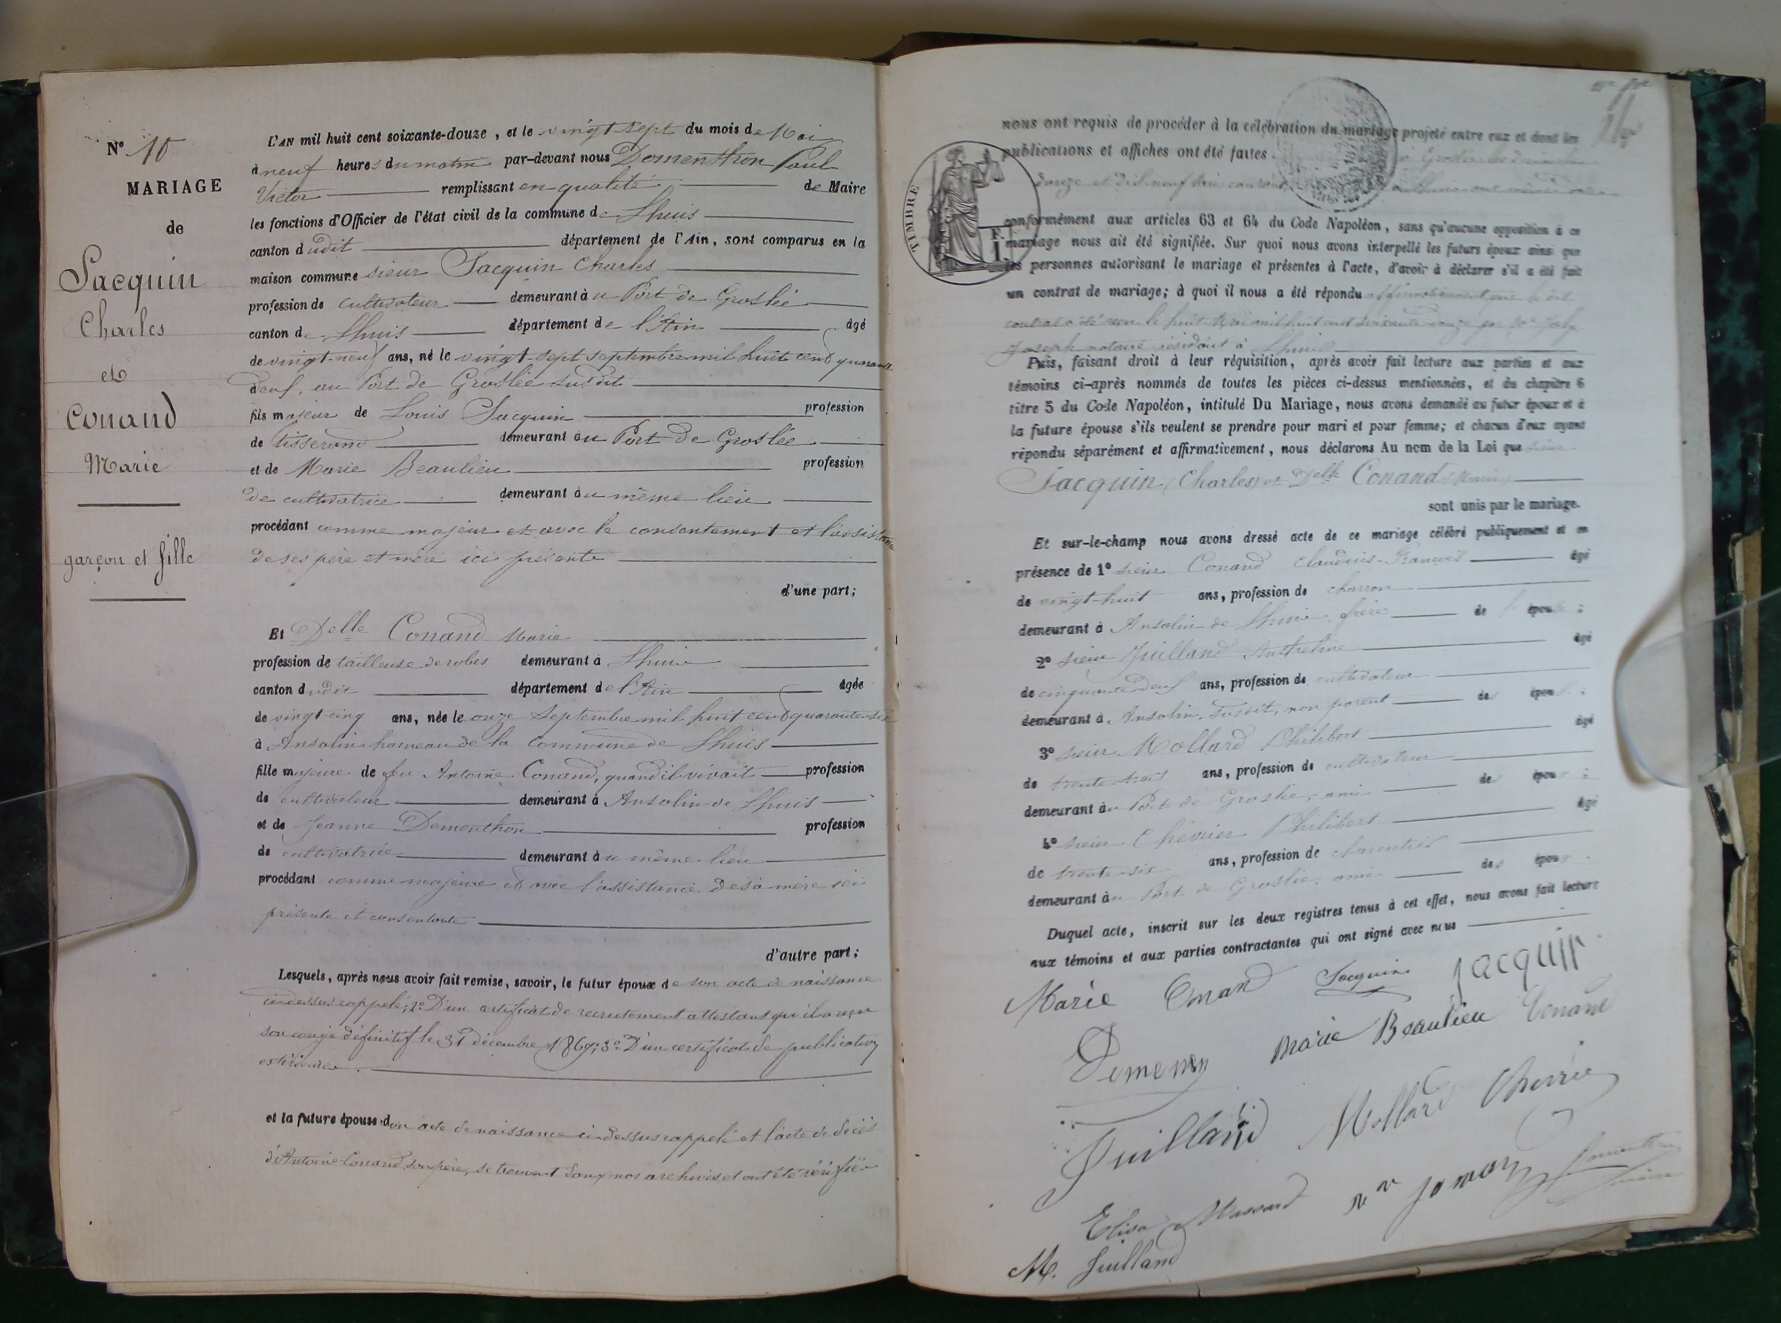 N° 10
MARIAGE
de
Jacquin
Charles
et
Conand
Marie
garçon et fille
L'AN mil huit cent soixante-douze, et le vingt sept du mois de Mai
à neuf heures du matin par-devant nous Dementhon Paul
Victor remplissant en qualité de Maire
les fonctions d'Officier de l'état civil de la commune de Lhuis
canton dudit département de l'Ain, sont comparus en la
maison commune sieur Jacquin Charles
profession de cultivateur demeurant au Port de Groslée
canton de Lhuis département de l'Ain âgé
de vingt-neuf ans, né le vingt-sept septembre mil huit cent quarante
deux, au Port de Groslée susdit
fils majeur de Louis Jacquin profession
de tisserand demeurant au Port de Groslée
et de Marie Beaulieu profession
de cultivatrice demeurant au même lieu
procédant comme majeur et avec le consentement et l'assistance
de ses père et mère ici présents
d'une part;
Et Delle Conand Marie
profession de tailleuse de robes demeurant à Lhuis
canton dudit département de l'Ain âgée
de vingt-cinq ans, née le onze septembre mil huit cent quarante-six
à Ansolin hameau de la commune de Lhuis
fille majeure de feu Antoine Conand, quand il vivait profession
de cultivateur demeurant à Ansolin de Lhuis
et de Jeanne Dementhon profession
de cultivatrice demeurant au même lieu
procédant comme majeure et avec l'assistance de sa mère ici
présente et consentante
d'autre part;
Lesquels, après nous avoir fait remise, savoir, le futur époux de son acte de naissance
ci-dessus rappelé; 2° D'un certificat de recrutement attestant qu'il a reçu
son congé définitif le 31 décembre 1869; 3° D'un certificat de publication
et la future épouse, d'un acte de naissance ci-dessus rappelé et l'acte de décès
d'Antoine Conand, son père, se trouvent dans nos archives et ont été vérifiés
nous ont requis de procéder à la célébration du mariage projeté entre eux et dont les
publications et affiches ont été faites
douze et dix-neuf Mai courant
TIMBRE
conformément aux articles 63 et 64 du Code Napoléon, sans qu'aucune opposition à ce
mariage nous ait été signifiée. Sur quoi nous avons interpellé les futurs époux ainsi que
les personnes autorisant le mariage et présentes à l'acte, d'avoir à déclarer s'il a été fait
un contrat de mariage; à quoi il nous a été répondu affirmativement
contrat a été reçu le huit Mai mil huit cent soixante douze par
Joseph notaire résidant à Lhuis
Puis, faisant droit à leur réquisition, après avoir fait lecture aux parties et aux
témoins ci-après nommés de toutes les pièces ci-dessus mentionnées, et du chapitre 6
titre 5 du Code Napoléon, intitulé Du Mariage, nous avons demandé au futur époux et à
la future épouse s'ils veulent se prendre pour mari et pour femme; et chacun d'eux ayant
répondu séparément et affirmativement, nous déclarons Au nom de la Loi que sieur
Jacquin (Charles) et Delle Conand (Marie)
sont unis par le mariage.
Et sur-le-champ nous avons dressé acte de ce mariage célébré publiquement et en
présence de 1° sieur Conand Claudius-François âgé
de vingt-huit ans, profession de charron
demeurant à Ansolin de Lhuis frère de l'épouse;
2° sieur Juilland Anthelme âgé
de cinquante deux ans, profession de cultivateur
demeurant à Ansolin susdit, non parent des époux;
3° sieur Mollard Philibert âgé
de trente-trois ans, profession de cultivateur
demeurant au Port de Groslée, ami des époux;
4° sieur Chevrier Philibert âgé
de trente-six ans, profession de charpentier
demeurant au Port de Groslée, ami des époux.
Duquel acte, inscrit sur les deux registres tenus à cet effet, nous avons fait lecture
aux témoins et aux parties contractantes qui ont signé avec nous
Marie Conand Jacquin Jacquin
Marie Beaulieu Conand
Juilland Mollard Chevrier
Elisa
M. Juilland